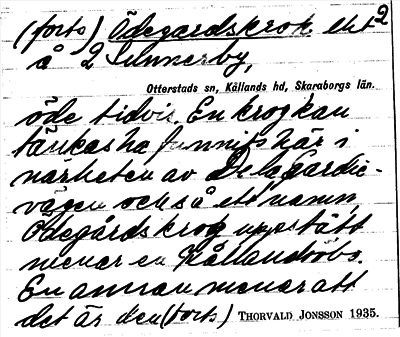 (forts) Ödegårdskrok, ekt 2
å 2 Sunnerby,
Otterstads sn, Kållands hd, Skaraborgs län.
öde tidvis. En krog kan
tänkas ha funnits här i
närheten av Delagardie-
vägen också ett namn
Ödegårdskrog uppstått
menar en Kållandsöbo.
En annan menar att
det är den (forts) THORVALD JONSSON 1935.